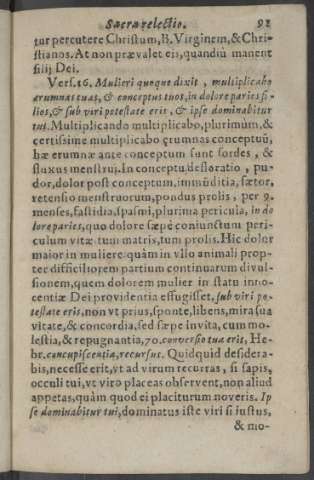 Sacra relectio. 92
tur percutere Christum, B. Virginem, & Chri-
stianos. At non prævalet eis, quandiù manent
filij Dei.
Vers. 16. Mulieri quoque dixit, multiplicabo
ærumnas tuas, & conceptus tuos, in dolore paries fi-
lios, & sub viri potestate eris, & ipse dominabitur
tui. Multiplicando multiplicabo, plurimùm, &
certissime multiplicabo ęrumnas conceptuũ,
hæ erumnæ ante conceptum sunt sordes, &
fluxus menstrui. In conceptu defloratio, pu-
dor, dolor post conceptum, immũditia, fætor,
retensio menstruorum, pondus prolis, per 9.
menses, fastidia, spasmi, plurima pericula, in do
lore paries, quo dolore sæpè coniunctum peri-
culum vitæ tum matris, tum prolis. Hic dolor
maior in muliere quàm in vllo animali prop-
ter difficiliorem partium continuarum divul-
sionem, quem dolorem mulier in statu inno-
centiæ Dei providentia effugisset, sub viri po-
testate eris, non vt prius, sponte, libens, mira sua
vitate, & concordia, sed sæpe invita, cum mo-
lestia, & repugnantia, 70. conversio tua eris, He-
br. concupiscentia, recursus. Quidquid desidera-
bis, necesse erit, vt ad virum recurras, si sapis,
occuli tui, vt viro placeas observent, non aliud
appetas, quàm quod ei placiturum noveris. Ip
se dominabitur tui, dominatus iste viri si iustus,
& mo-